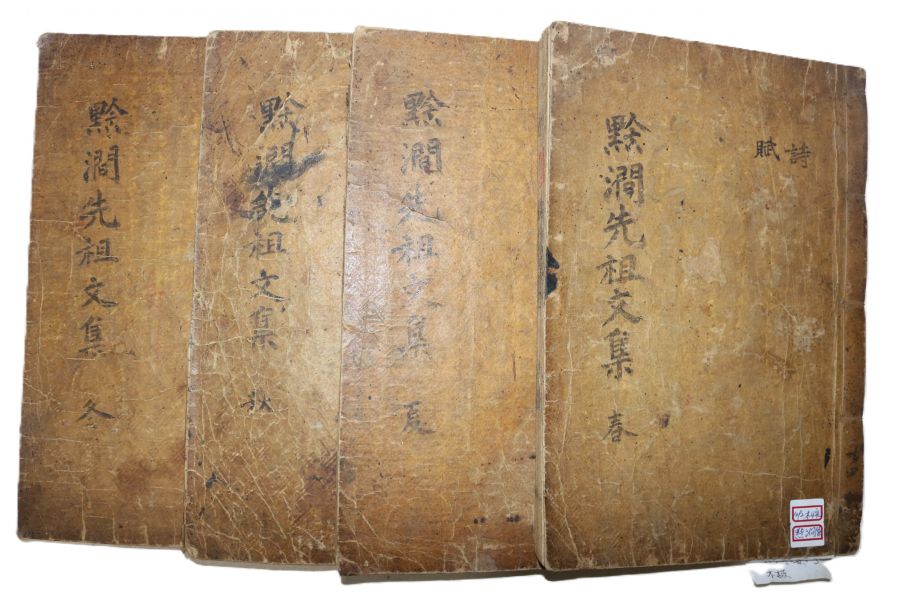 黔澗先祖文集 春
詩
賦
黔澗先祖文集 夏
黔澗先祖文集 秋
黔澗先祖文集 冬